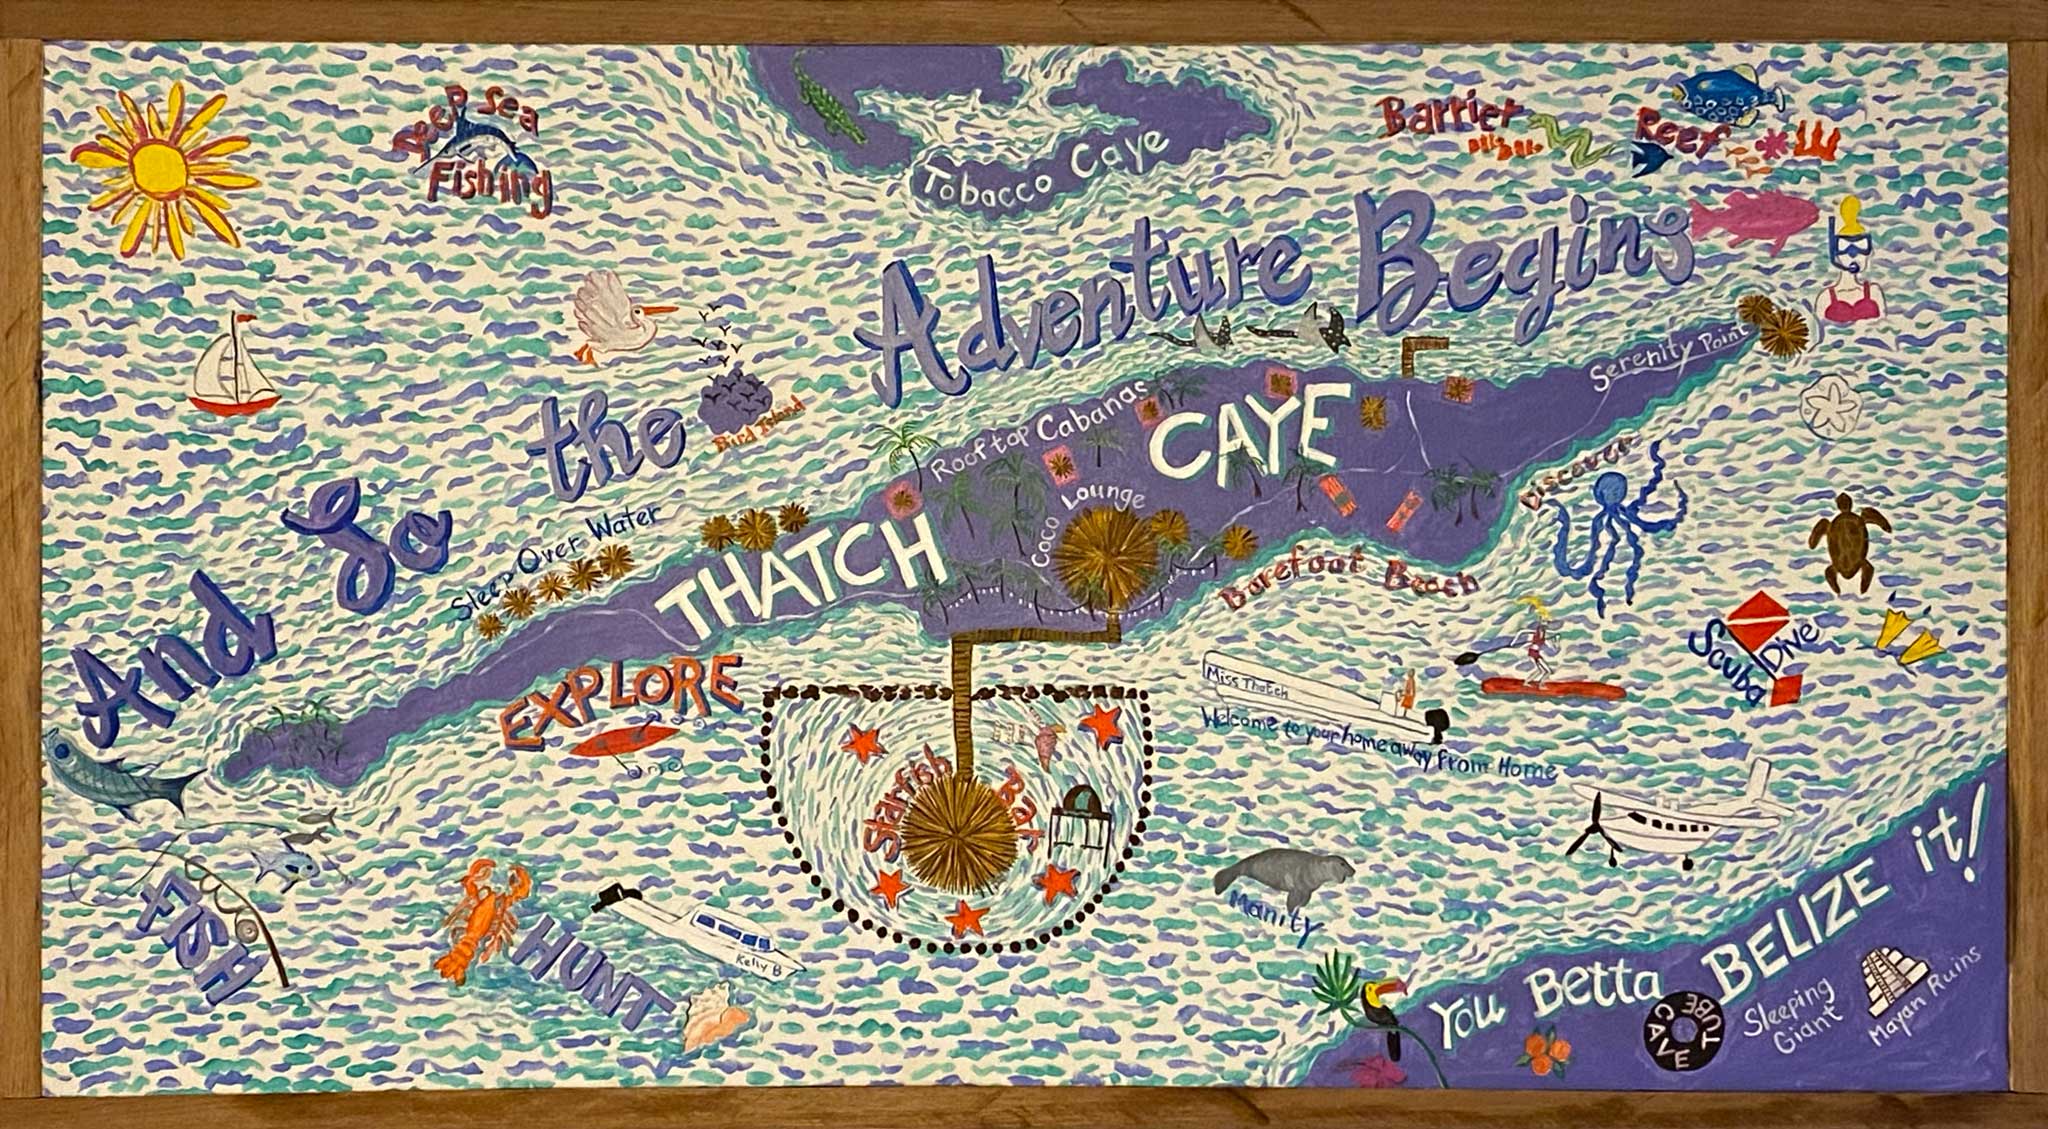 Deep Sea
Fishing
Tobacco Caye
Barrier
Reef
And So the Adventure Begins
Bird Island
Sleep Over Water
Rooftop Cabanas
Serenity Point
THATCH CAYE
Coco Lounge
Discover
Barefoot Beach
EXPLORE
Scuba
Dive
Miss Thatch
Welcome to your home away from Home
Starfish Bar
FISH
HUNT
Kelly B
Manity
You Betta BELIZE it!
CAVE
TUBE
Sleeping
Giant
Mayan Ruins